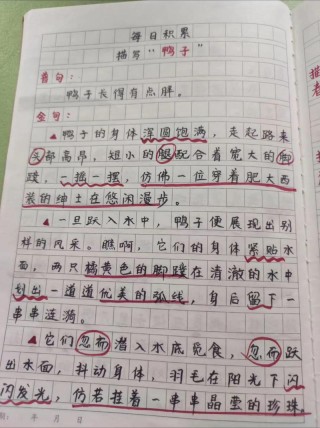 每日积累
描写“鸭子”
普句：
鸭子长得有点胖。
金句：
▲鸭子的身体浑圆饱满，走起路来
头部高昂，短小的腿配合着宽大的脚
蹼，一摇一摆，仿佛一位穿着肥大西
装的绅士在悠闲漫步。
▲一旦跃入水中，鸭子便展现出别
样的风采。瞧啊，它们的身体紧贴水
面，两只橘黄色的脚蹼在清澈的水中
划出一道道优美的弧线，身后留下一
串串涟漪。
▲它们忽而潜入水底觅食，忽而跃
出水面，抖动身体，羽毛在阳光下闪
闪发光，仿若挂着一串串晶莹的珍珠。
年 月 日
描